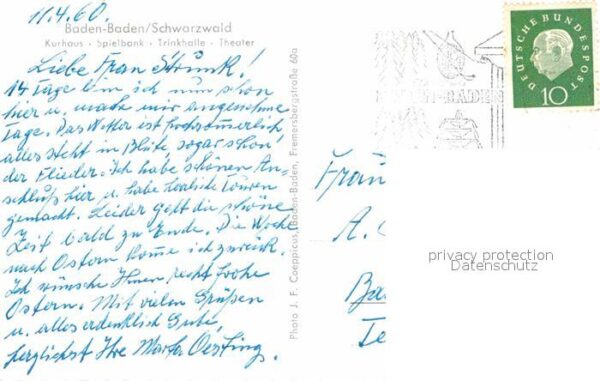 11.4.60.
Baden-Baden/Schwarzwald
Kurhaus · Spielbank · Trinkhalle · Theater
Liebe Frau Strunk!
14 Tage bin ich nun schon
hier u. mache mir angenehme
Tage. Das Wetter ist hochsommerlich
alles steht in Blüte, sogar schon
der Flieder. Ich habe schönen An-
schluß hier u. habe herrliche Touren
gemacht. Leider geht die schöne
Zeit bald zu Ende. Die Woche
nach Ostern komme ich zurück.
Ich wünsche Ihnen recht frohe
Ostern. Mit vielen Grüßen
u. alles erdenklich Gute,
herzlichst Ihre Marta Oesting.
Photo J. F. Coeppicus, Baden-Baden, Fremersbergstraße 60a
DEUTSCHE BUNDESPOST
10
BADEN-BADEN
Frau
A.
privacy protection
Datenschutz